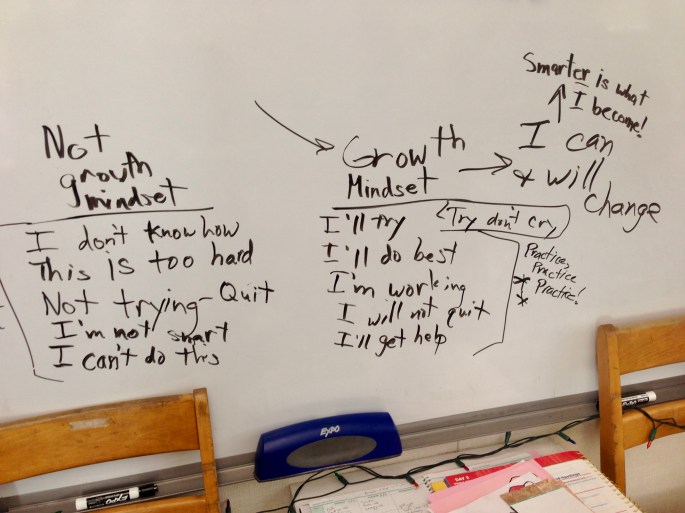 Not
growth
mindset
I don't know how
This is too hard
Not trying - Quit
I'm not smart
I can't do this
Growth
Mindset
I'll try
Try don't cry
I'll do best
I'm working
I will not quit
I'll get help
Practice,
Practice
Practice!
Smarter is what
I become!
I can
& will
change
EXPO
EXPO